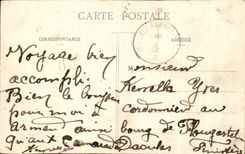 CARTE POSTALE
CORRESPONDANCE
ADRESSE
Voyage bien
accompli
Bien le bonjour
pour moi à
Armand ainsi
qu'aux camarades
Monsieur
Kervella Yves
cordonnier au
bourg de Plougastel
Daoulas
Finistère